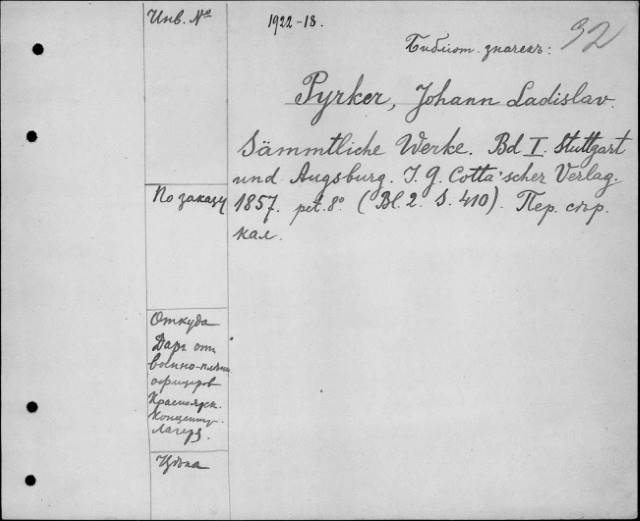 Инв. №
1922-18.
Библіот. значекъ: 32
Pyrker, Johann Ladislav.
Sämmtliche Werke. Bd I. Stuttgart
und Augsburg. I. G. Cotta'scher Verlag.
1857. pet. 8° (Bl. 2. S. 410). Пер. сѣр.
кал.
По заказу
Откуда
Даръ отъ
военно-плѣнн.
офицеров
Красноярск.
Концентр.
лагеря.
Цѣна